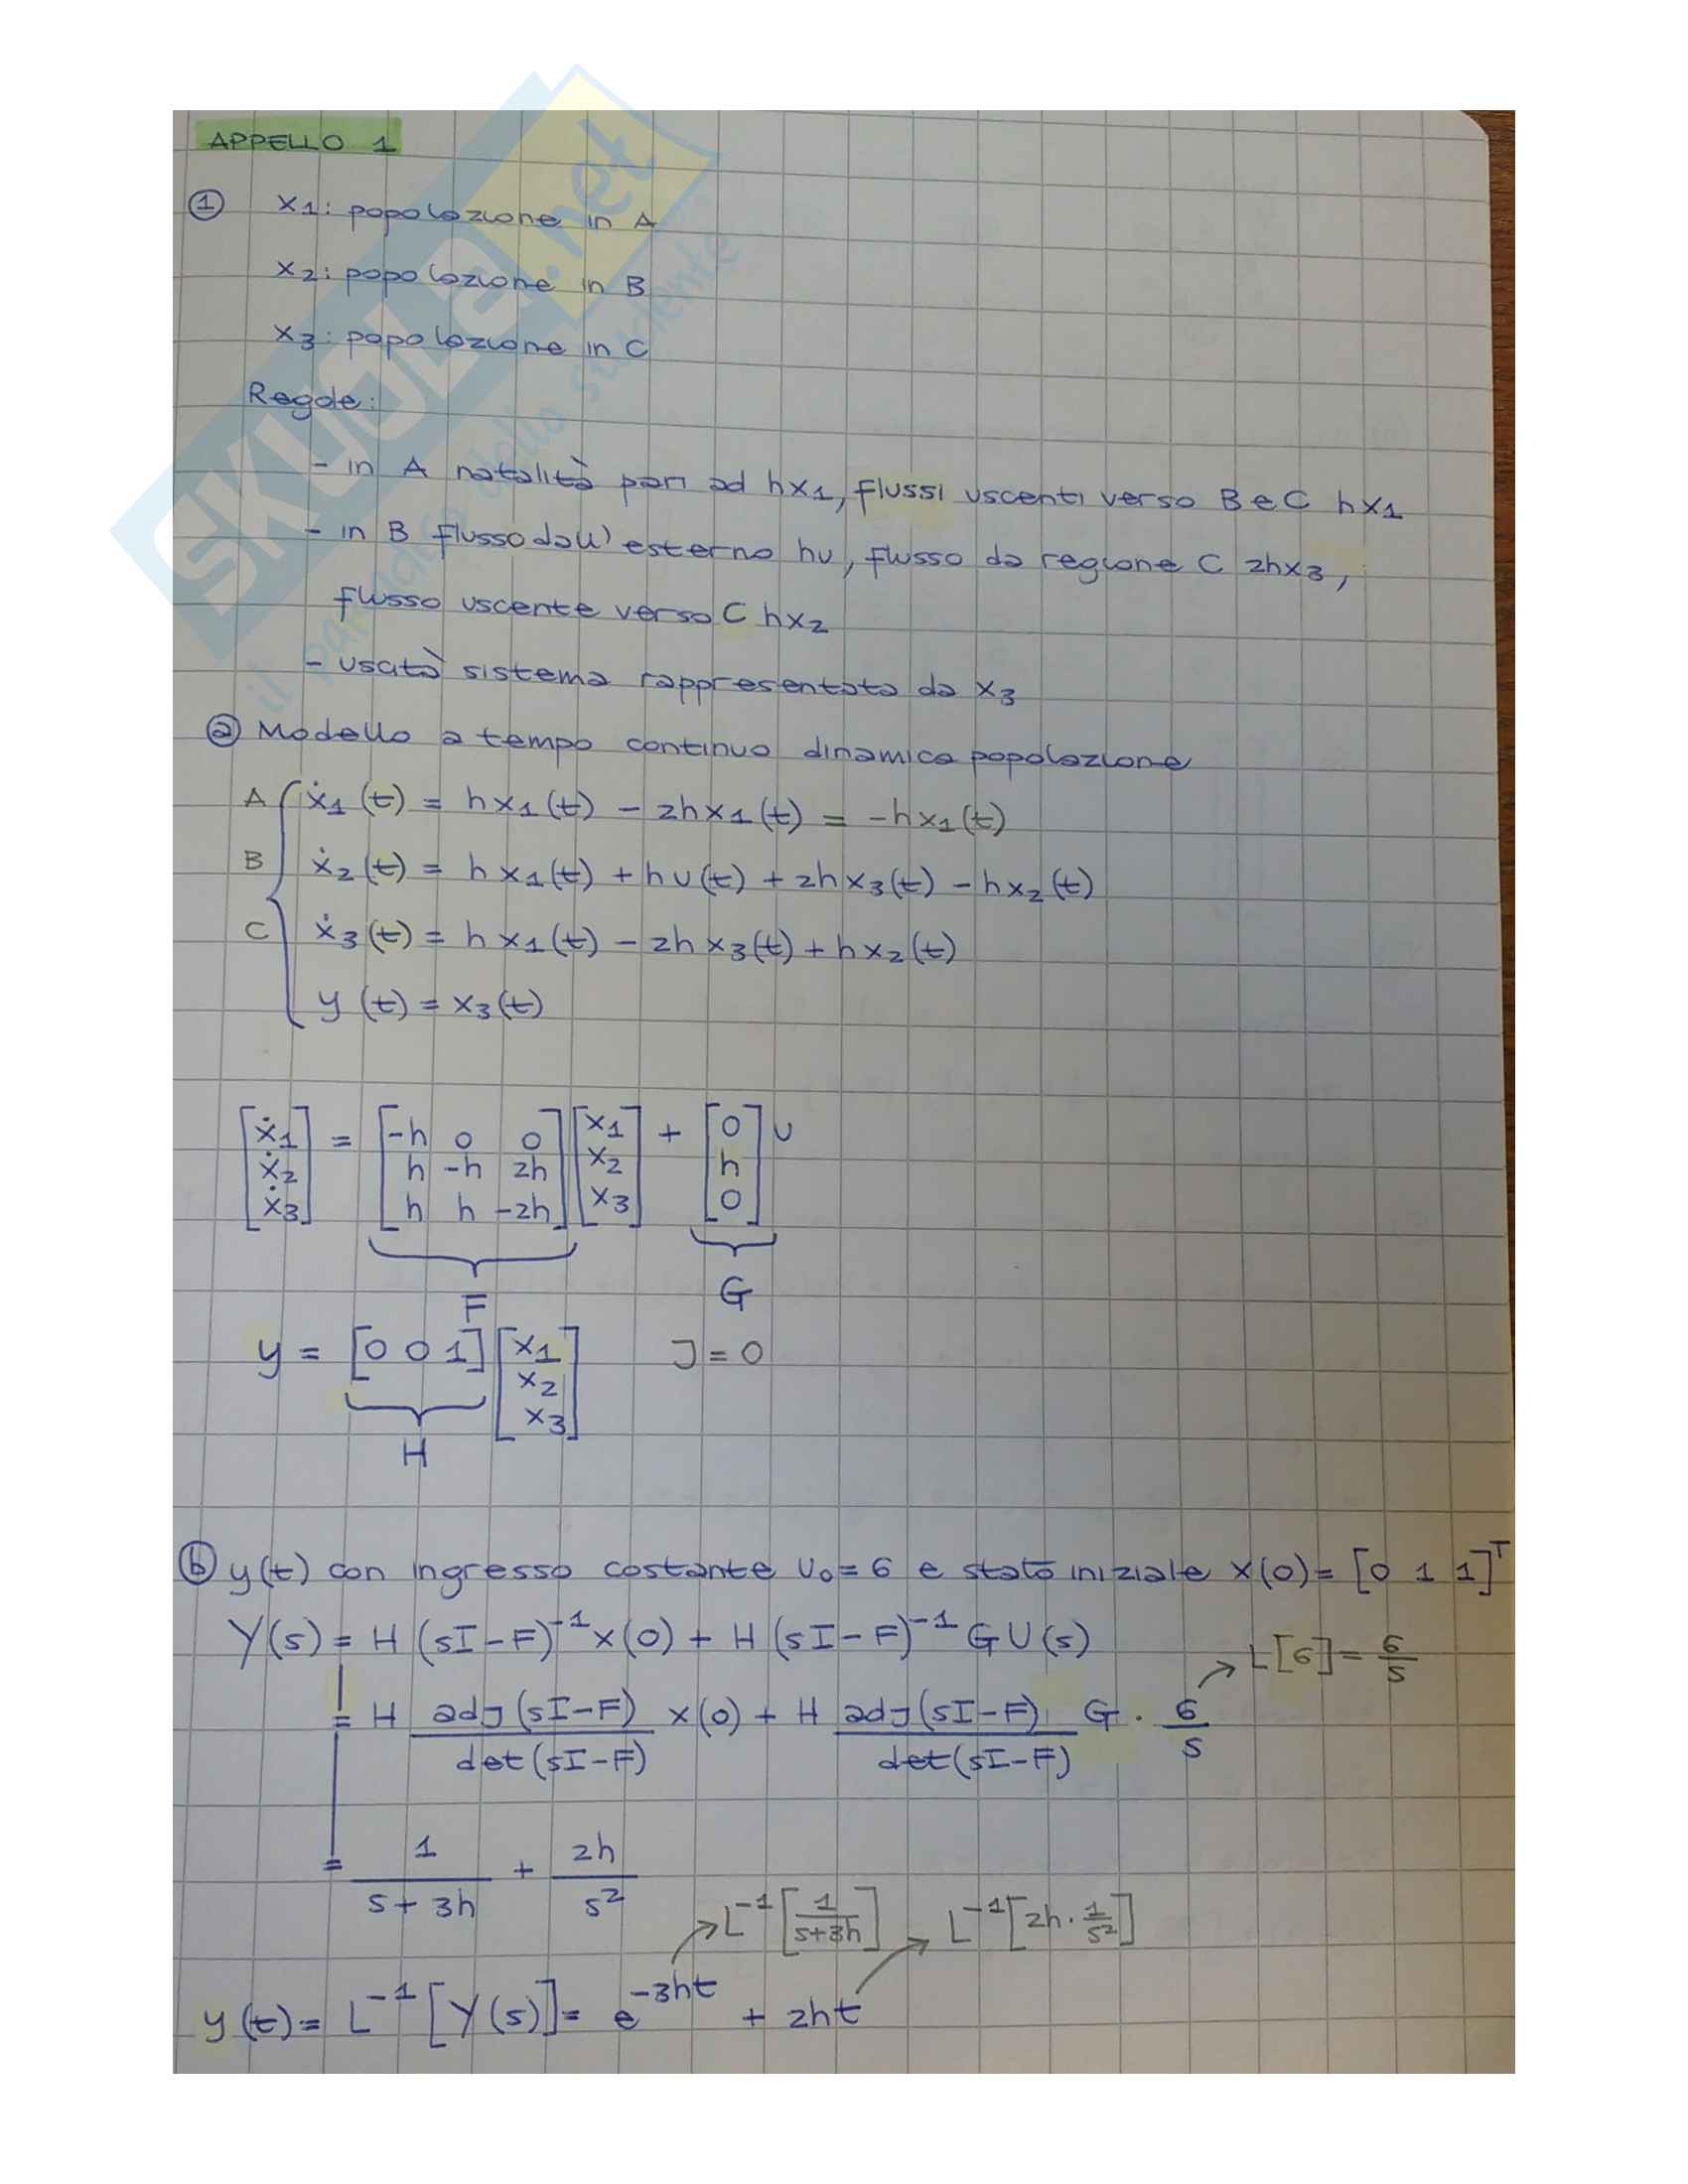 APPELLO 1
① x1: popolazione in A
x2: popolazione in B
x3: popolazione in C
Regole:
- in A natalità pari ad hx1, flussi uscenti verso B e C hx1
- in B flusso dall' esterno hu, flusso da regione C 2hx3,
flusso uscente verso C hx2
- usatà sistema rappresentata da x3
ⓐ Modello a tempo continuo dinamica popolazione
A ẋ1(t) = hx1(t) - 2hx1(t) = -hx1(t)
B ẋ2(t) = hx1(t) + hu(t) + 2hx3(t) - hx2(t)
C ẋ3(t) = hx1(t) - 2hx3(t) + hx2(t)
y(t) = x3(t)
[ẋ1 ẋ2 ẋ3] = [-h 0 0 h -h 2h h h -2h] [x1 x2 x3] + [0 h 0] u
F G
y = [0 0 1] [x1 x2 x3] J = 0
H
ⓑ y(t) con ingresso costante u0 = 6 e stato iniziale x(0) = [0 1 1]^T
Y(s) = H(sI-F)^-1 x(0) + H(sI-F)^-1 G U(s)
L[6] = 6/s
= H adj(sI-F)/det(sI-F) x(0) + H adj(sI-F)/det(sI-F) G · 6/s
= 1/(s+3h) + 2h/s²
L^-1[1/(s+3h)] L^-1[2h · 1/s²]
y(t) = L^-1[Y(s)] = e^-3ht + 2ht
SKUOLA.net
il paradiso dello studente